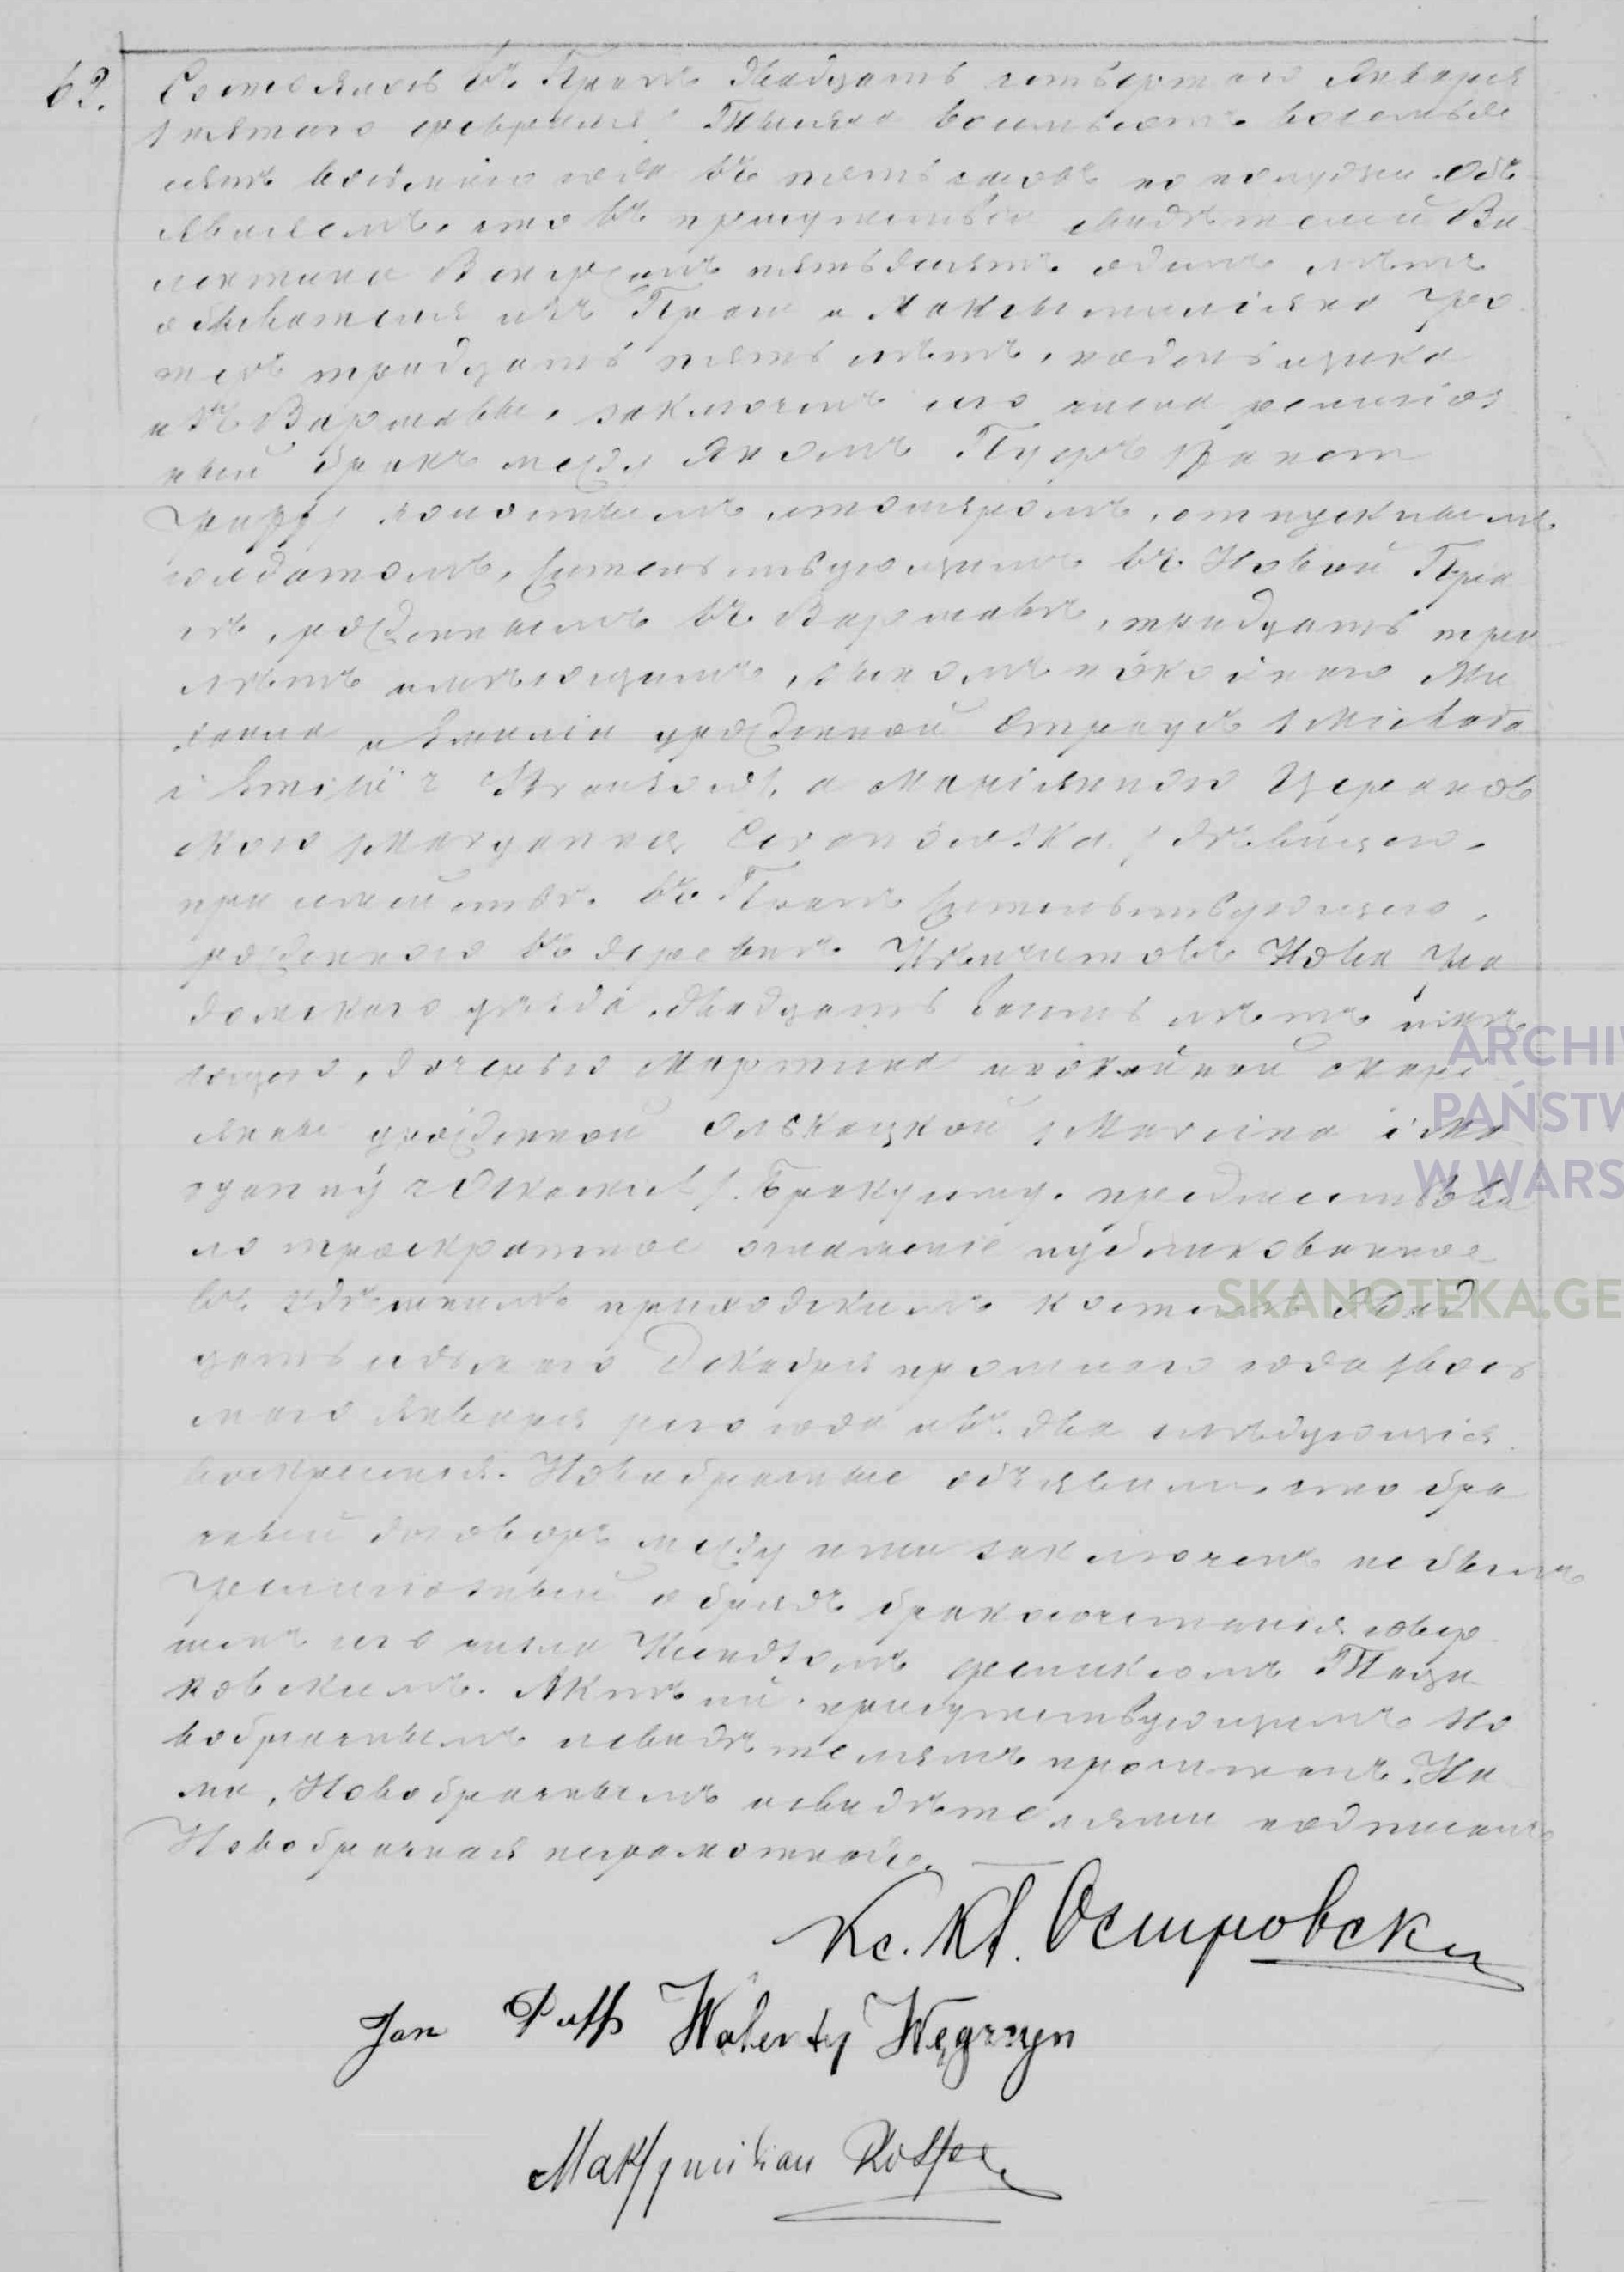 62.
Состоялось въ Праге двадцать четвертаго Января
/ пятаго февраля / Тысяча восемьсотъ восемьде
сятъ восьмаго года въ пять часовъ по полудни. Объ
являемъ, что въ присутствіи свидѣтелей Ва
лентина Венгржинъ пятьдесятъ одинъ лѣтъ
обывателя изъ Праги и Максымиліяна
тридцать пять лѣтъ, поденьщика
изъ Варшавы, заключенъ сего числа религіоз
ный бракъ межд Яномъ Пуфъ
холостымъ, столяромъ, отпускнымъ
солдатомъ, жительствующимъ въ Новой Пра
гѣ, рожденнымъ въ Варшавѣ, тридцать три
лѣтъ имѣющимъ, сыномъ покойнаго Ми
хаила и Эмиліи урожденной Страусъ / Michała
i Emilii z / а Маріянною Церанов
скою / Maryanna / дѣвицею,
при въ Праге жительствующею,
рожденною въ деревнѣ Нова Ра
домскаго уѣзда, двадцать восемь лѣтъ имѣ
ющею, дочерью Мартина и покойной Марі
янны урожденной / Marcina i Ma
ryanny z / Браку сему предшествова
ло троекратное оглашеніе публикованное
въ здѣшнемъ приходскомъ костелѣ двад
цать седьмаго Декабря прошлаго года / вось
маго Января сего года и въ два слѣдующія
воскресенія. Новобрачные объявили, что бра
чный договоръ между ими заключенъ не былъ
Религіозный обрядъ бракосочетанія совер
шенъ сего числа Ксендзомъ Феликсомъ
ковскимъ. Актъ сей присутствующимъ Но
вобрачнымъ и свидѣтелямъ прочитанъ. На
ми, Новобрачнымъ и свидѣтелями подписанъ
Новобрачная неграмотная.
Кс. Островски
Jan Puff Walenty Węgrzyn
Maksymilian
ARCHIW
PAŃSTW
W WARS
SKANOTEKA.GE